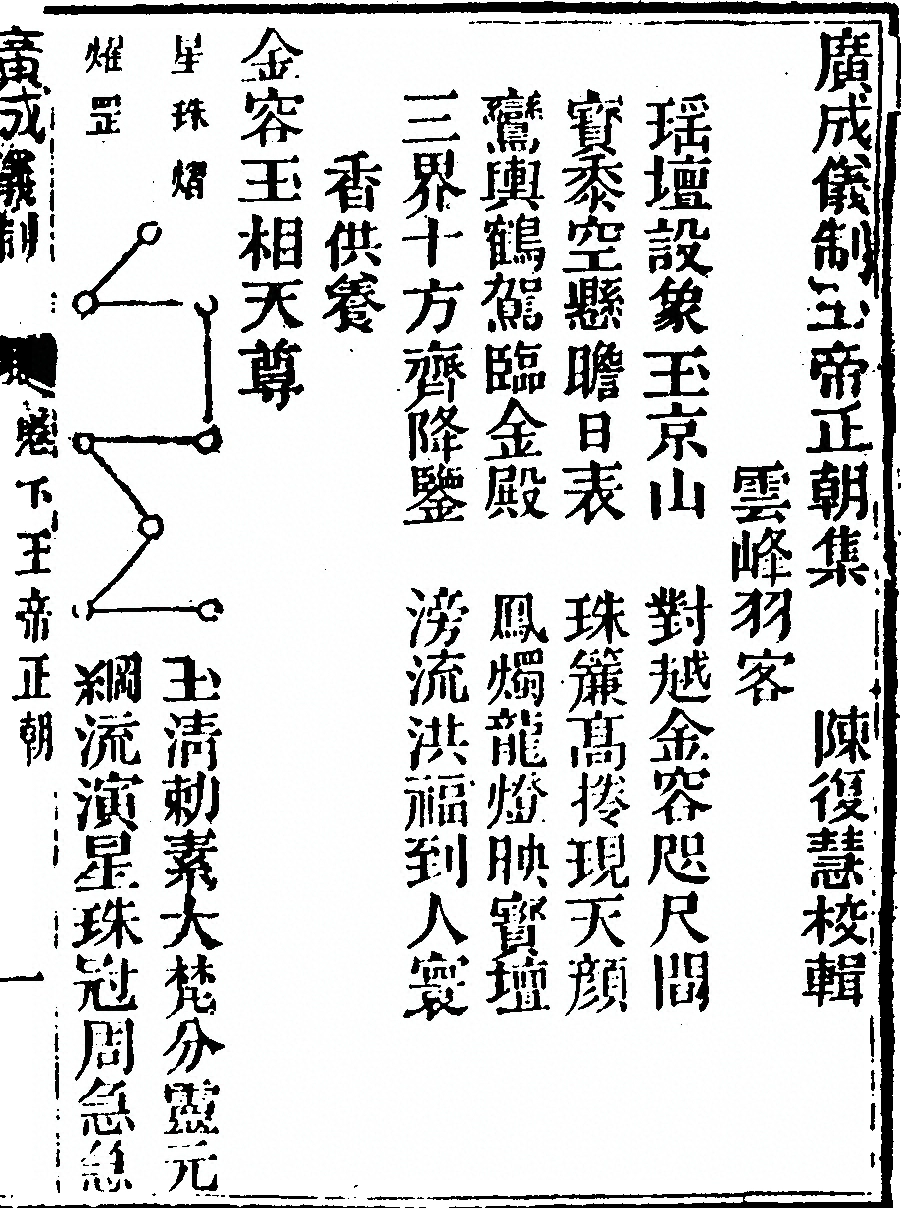 廣成儀制玉帝正朝集　陳復慧校輯
雲峰羽客
瑶壇設象玉京山　對越金容咫尺間
寳黍空懸瞻日表　珠簾髙捲現天顔
鸞輿鶴駕臨金殿　鳳燭龍燈映寳壇
三界十方齊降鑒　滂流洪福到人寰
香供養
金容玉相天尊
星珠熠　玉清勅素大梵分靈元
燿罡　綱流演星珠冠周急急
廣成儀制
卷下玉帝正朝
一